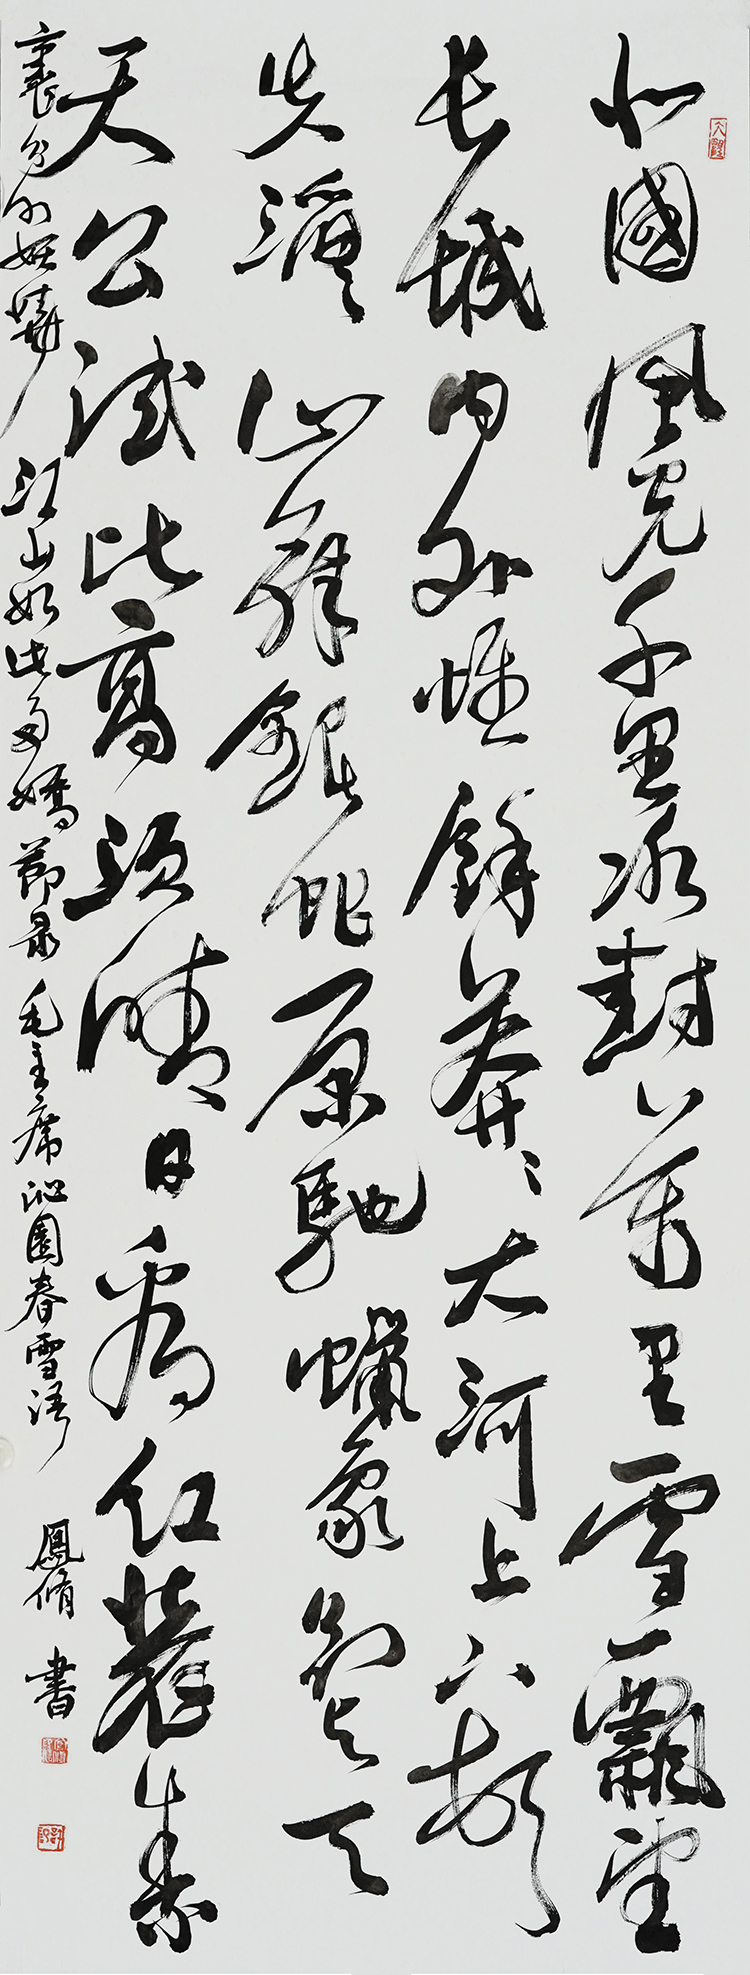 北國風光千里冰封萬里雪飄望
长城内外惟餘莽〻大河上下頓
失滔〻山舞銀蛇原馳蠟象欲与天
天公試比高須晴日看紅裝素
裹分外妖嬈江山如此多嬌節录毛主席沁園春雪語 鳳脩書